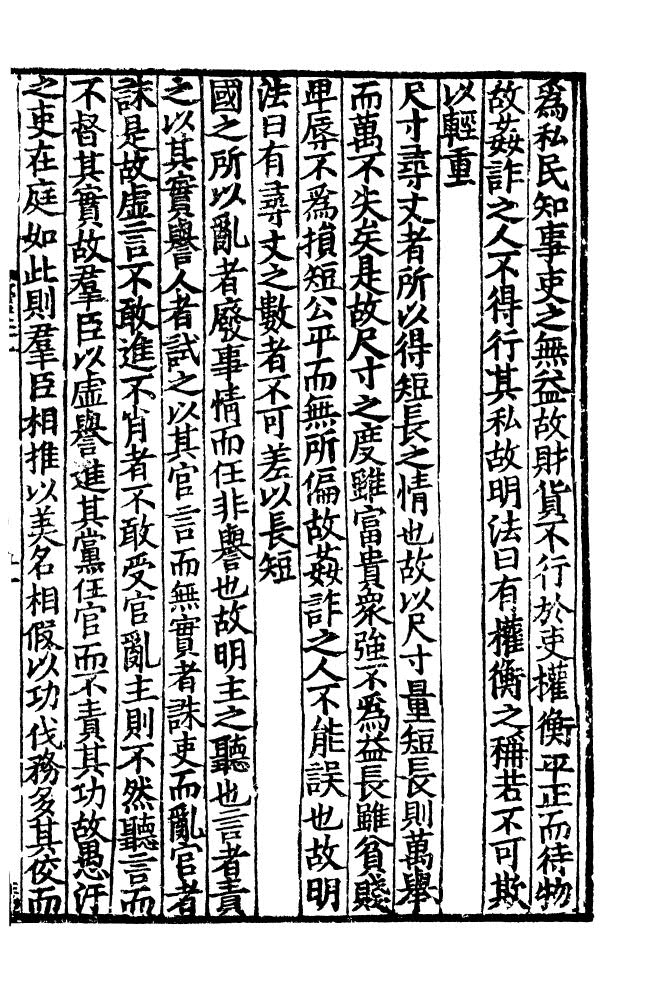 爲私民知事吏之無益故財貨不行於吏權衡平正而待物
故姦詐之人不得行其私故明法曰有權衡之稱若不可欺
以輕重
尺寸尋丈者所以得短長之情也故以尺寸量短長則萬舉
而萬不失矣是故尺寸之度雖富貴衆強不爲益長雖貧賤
卑辱不爲損短公平而無所偏故姦詐之人不能誤也故明
法曰有尋丈之數者不可差以長短
國之所以亂者廢事情而任非譽也故明主之聽也言者責
之以其實譽人者試之以其官言而無實者誅吏而亂官者
誅是故虛言不敢進不肖者不敢受官亂主則不然聽言而
不督其實故羣臣以虛譽進其黨任官而不責其功故愚汙
之吏在庭如此則羣臣相推以美名相假以功伐務多其佼而